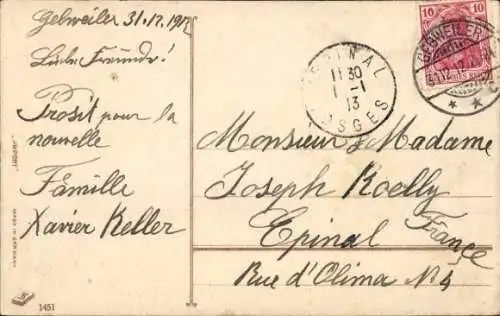 Gebweiler 31.12.1912
Liebe Freunde!
Prosit pour la
nouvelle
Famille
Xavier Keller
1451
EPINAL
11 30
1 - 1
13
VOSGES
10
10
GEBWEILER
Monsieur & Madame
Joseph Roelly
Epinal
France
Rue d'Olima N. 4